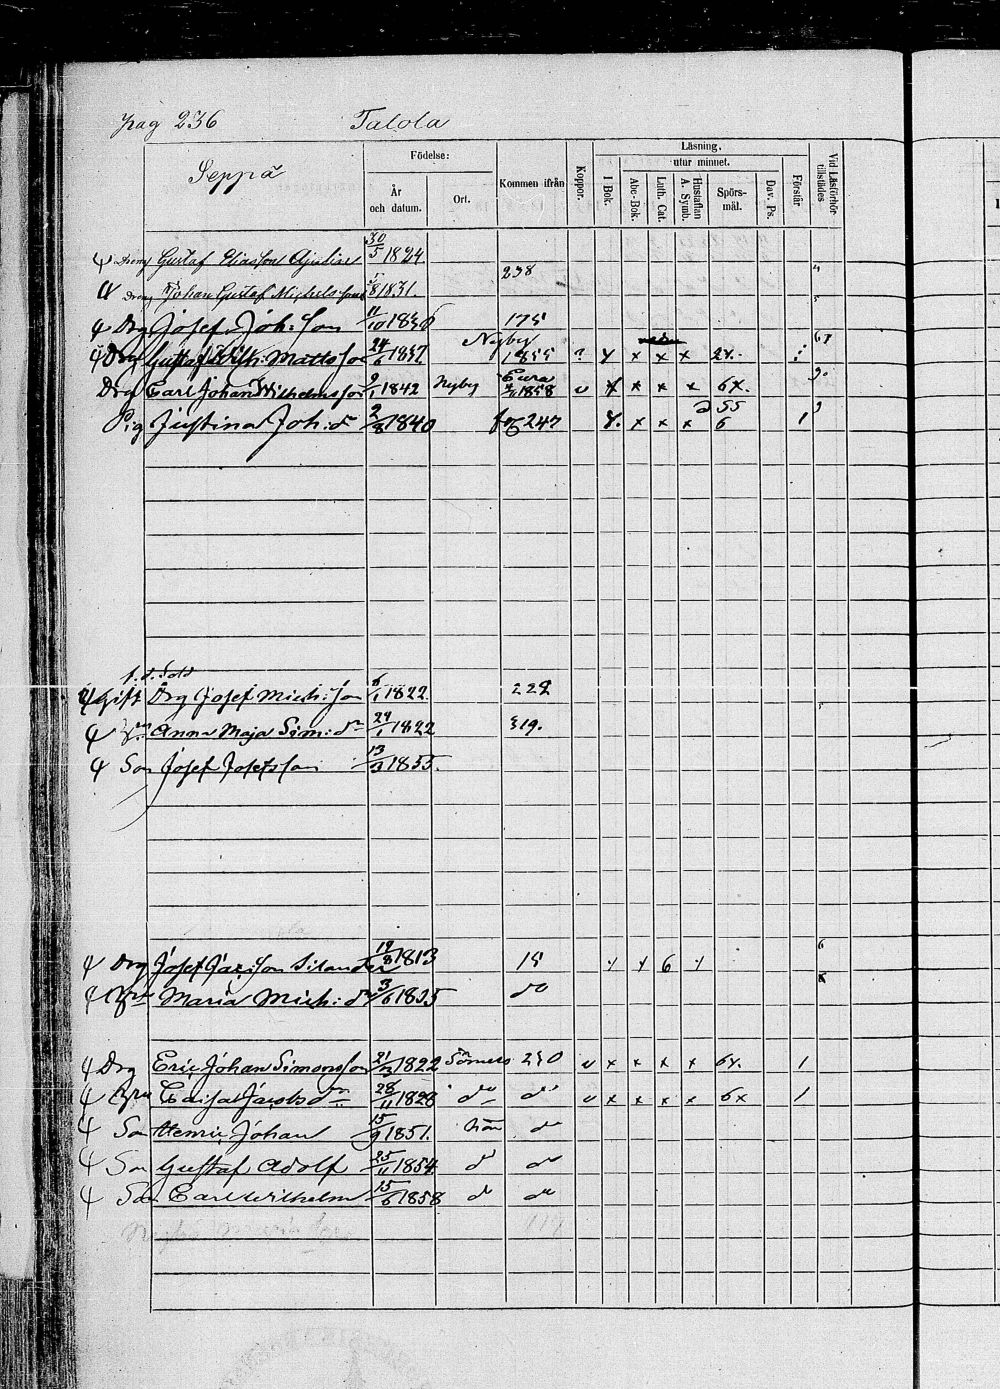 pag 236 Talola
Seppä
Födelse:
År och datum.
Ort.
Kommen ifrån
Koppor.
Läsning.
utur minnet.
I Bok.
Abc-Bok.
Luth. Cat.
Hustaflan A. Symb.
Spörs-mål.
Dav. Ps.
Förstår
Vid Läsförhör tillstädes
Dreng Gustaf Eliasson 30/5 1824 238
Dreng Johan Gustaf Michelsson 5/8 1831.
Drg Josef Joh:son 11/10 1836 175
Drg Gustaf Wilh: Mattsson 24/ 1837 Nyby 1855 ? x x x 67
Drg Carl Johan Wilhelmsson 9/1 1842 Nyby Eura 1858 x x x 6x.
Pig Justina Joh:dr 2/8 1840 247 x x x 6 1
255
f.d. Sold
Gift Drg Josef Mich:son 6/1 1822 228
Anna Maja Sim:dr 24/1 1822 319.
Son Josef Josefsson 13/3 1855.
Drg Josef 19/8 1813 15 6
Maria Mich:dr 3/6 1835 do
Drg Eric Johan Simonsson 21/3 1822 Somero 240 x x x x 6x. 1
Caisa Jacobsdr 28/11 1828 do do x x x x 6x 1
Son Henric Johan 15/9 1851. do
Son Gustaf Adolf 25/11 1854 do do
Son Carl Wilhelm 15/6 1858 do do